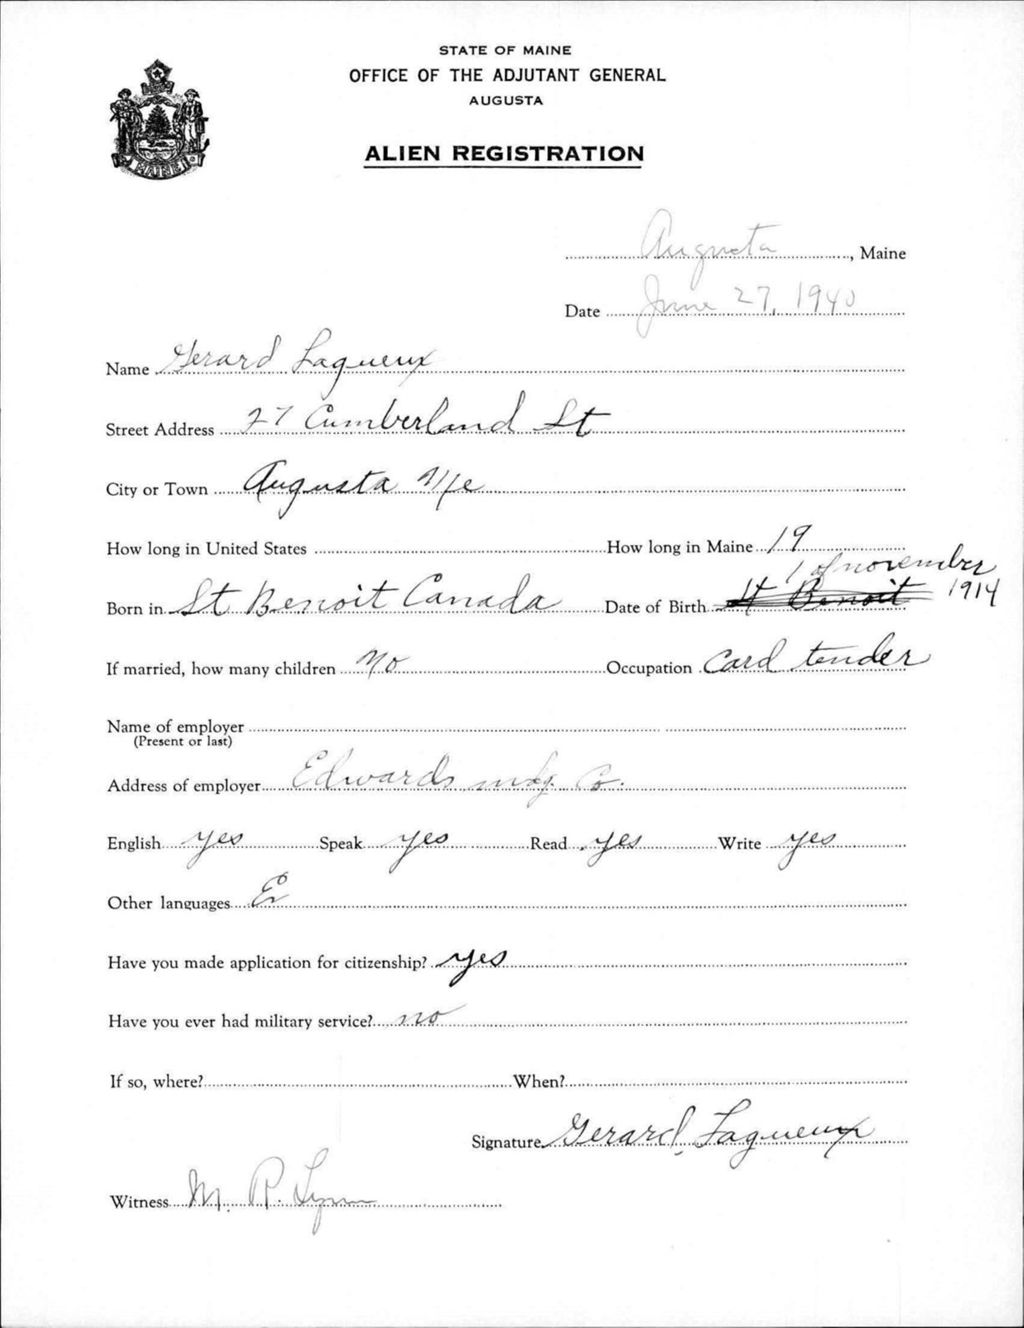 STATE OF MAINE
OFFICE OF THE ADJUTANT GENERAL
AUGUSTA
ALIEN REGISTRATION
MAINE
Augusta, Maine
Date June 27, 1940
Name Gerard Laqueux
Street Address 27 Cumberland St
City or Town Augusta Me
How long in United States How long in Maine 19
1 of november 1914
Born in St Benoit Canada Date of Birth St Benoit
If married, how many children No Occupation Card tender
Name of employer
(Present or last)
Address of employer Edwards mfg. Co.
English yes Speak yes Read yes Write yes
Other languages
Have you made application for citizenship? yes
Have you ever had military service? no
If so, where? When?
Signature Gerard Laqueux
Witness M. P. Lynn